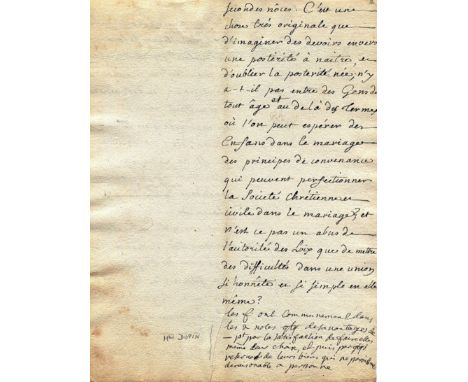 secondes nôces. C'est une
chose trés originale que
d'imaginer des devoirs envers
une postérité à naitre, et
d'oublier la posterité née; n'y
a-t-il pas entre des Gens de
tout âge et au de là des termes
où l'on peut espérer des
Enfans dans le mariage
des principes de convenance
qui peuvent perfectionner
la Société chrétienne et
civile dans le mariage? et
n'est ce pas un abus de
l'autorité des Loix que de mettre
des difficultés dans une union
si honnête et si simple en elle
même?
les f ont communement dans
les 2 notes desavantages
par la satisfaction de faire elles
même leur choix, et puis
de leurs biens qui ne
a personne
Mme DUPIN